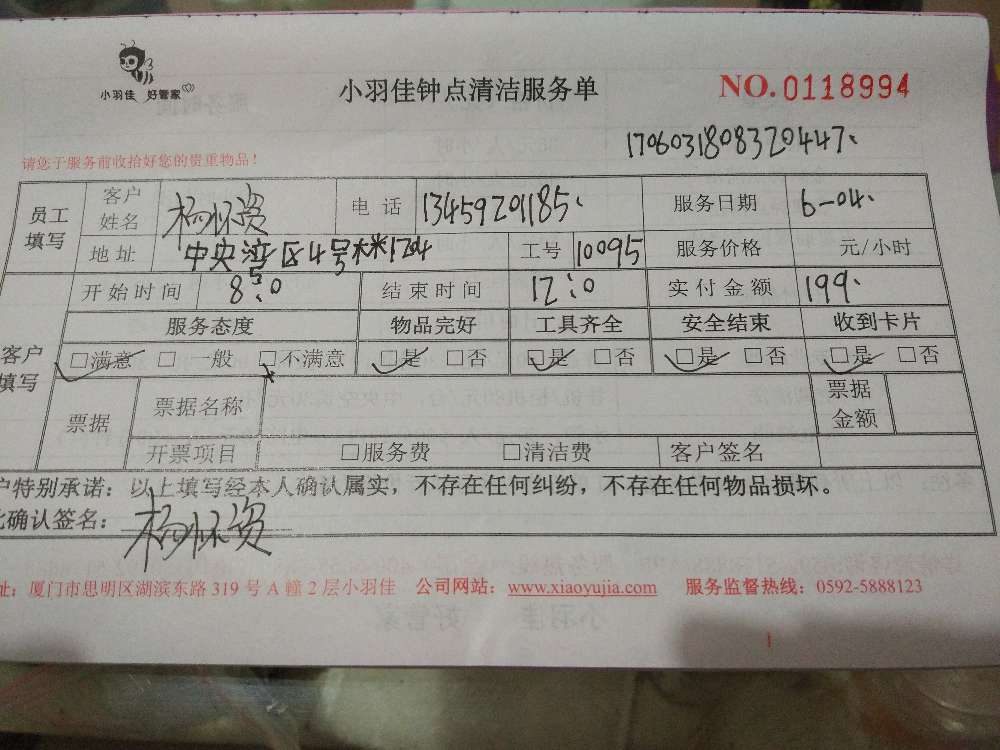 小羽佳 好管家
小羽佳钟点清洁服务单
NO.0118994
1706031808320447.
请您于服务前收拾好您的贵重物品!
员工填写 客户姓名 杨怀资 电话 13459201185. 服务日期 6-04.
地址 中央湾区4号 1704 工号 10095 服务价格 元/小时
客户填写 开始时间 8:0 结束时间 12:0 实付金额 199.
服务态度 物品完好 工具齐全 安全结束 收到卡片
□满意 □一般 □不满意 □是 □否 □是 □否 □是 □否 □是 □否
票据 票据名称 票据金额
开票项目 □服务费 □清洁费 客户签名
户特别承诺:以上填写经本人确认属实,不存在任何纠纷,不存在任何物品损坏。
确认签名: 杨怀资
址:厦门市思明区湖滨东路 319 号 A 幢 2 层小羽佳 公司网站:www.xiaoyujia.com 服务监督热线:0592-5888123
1